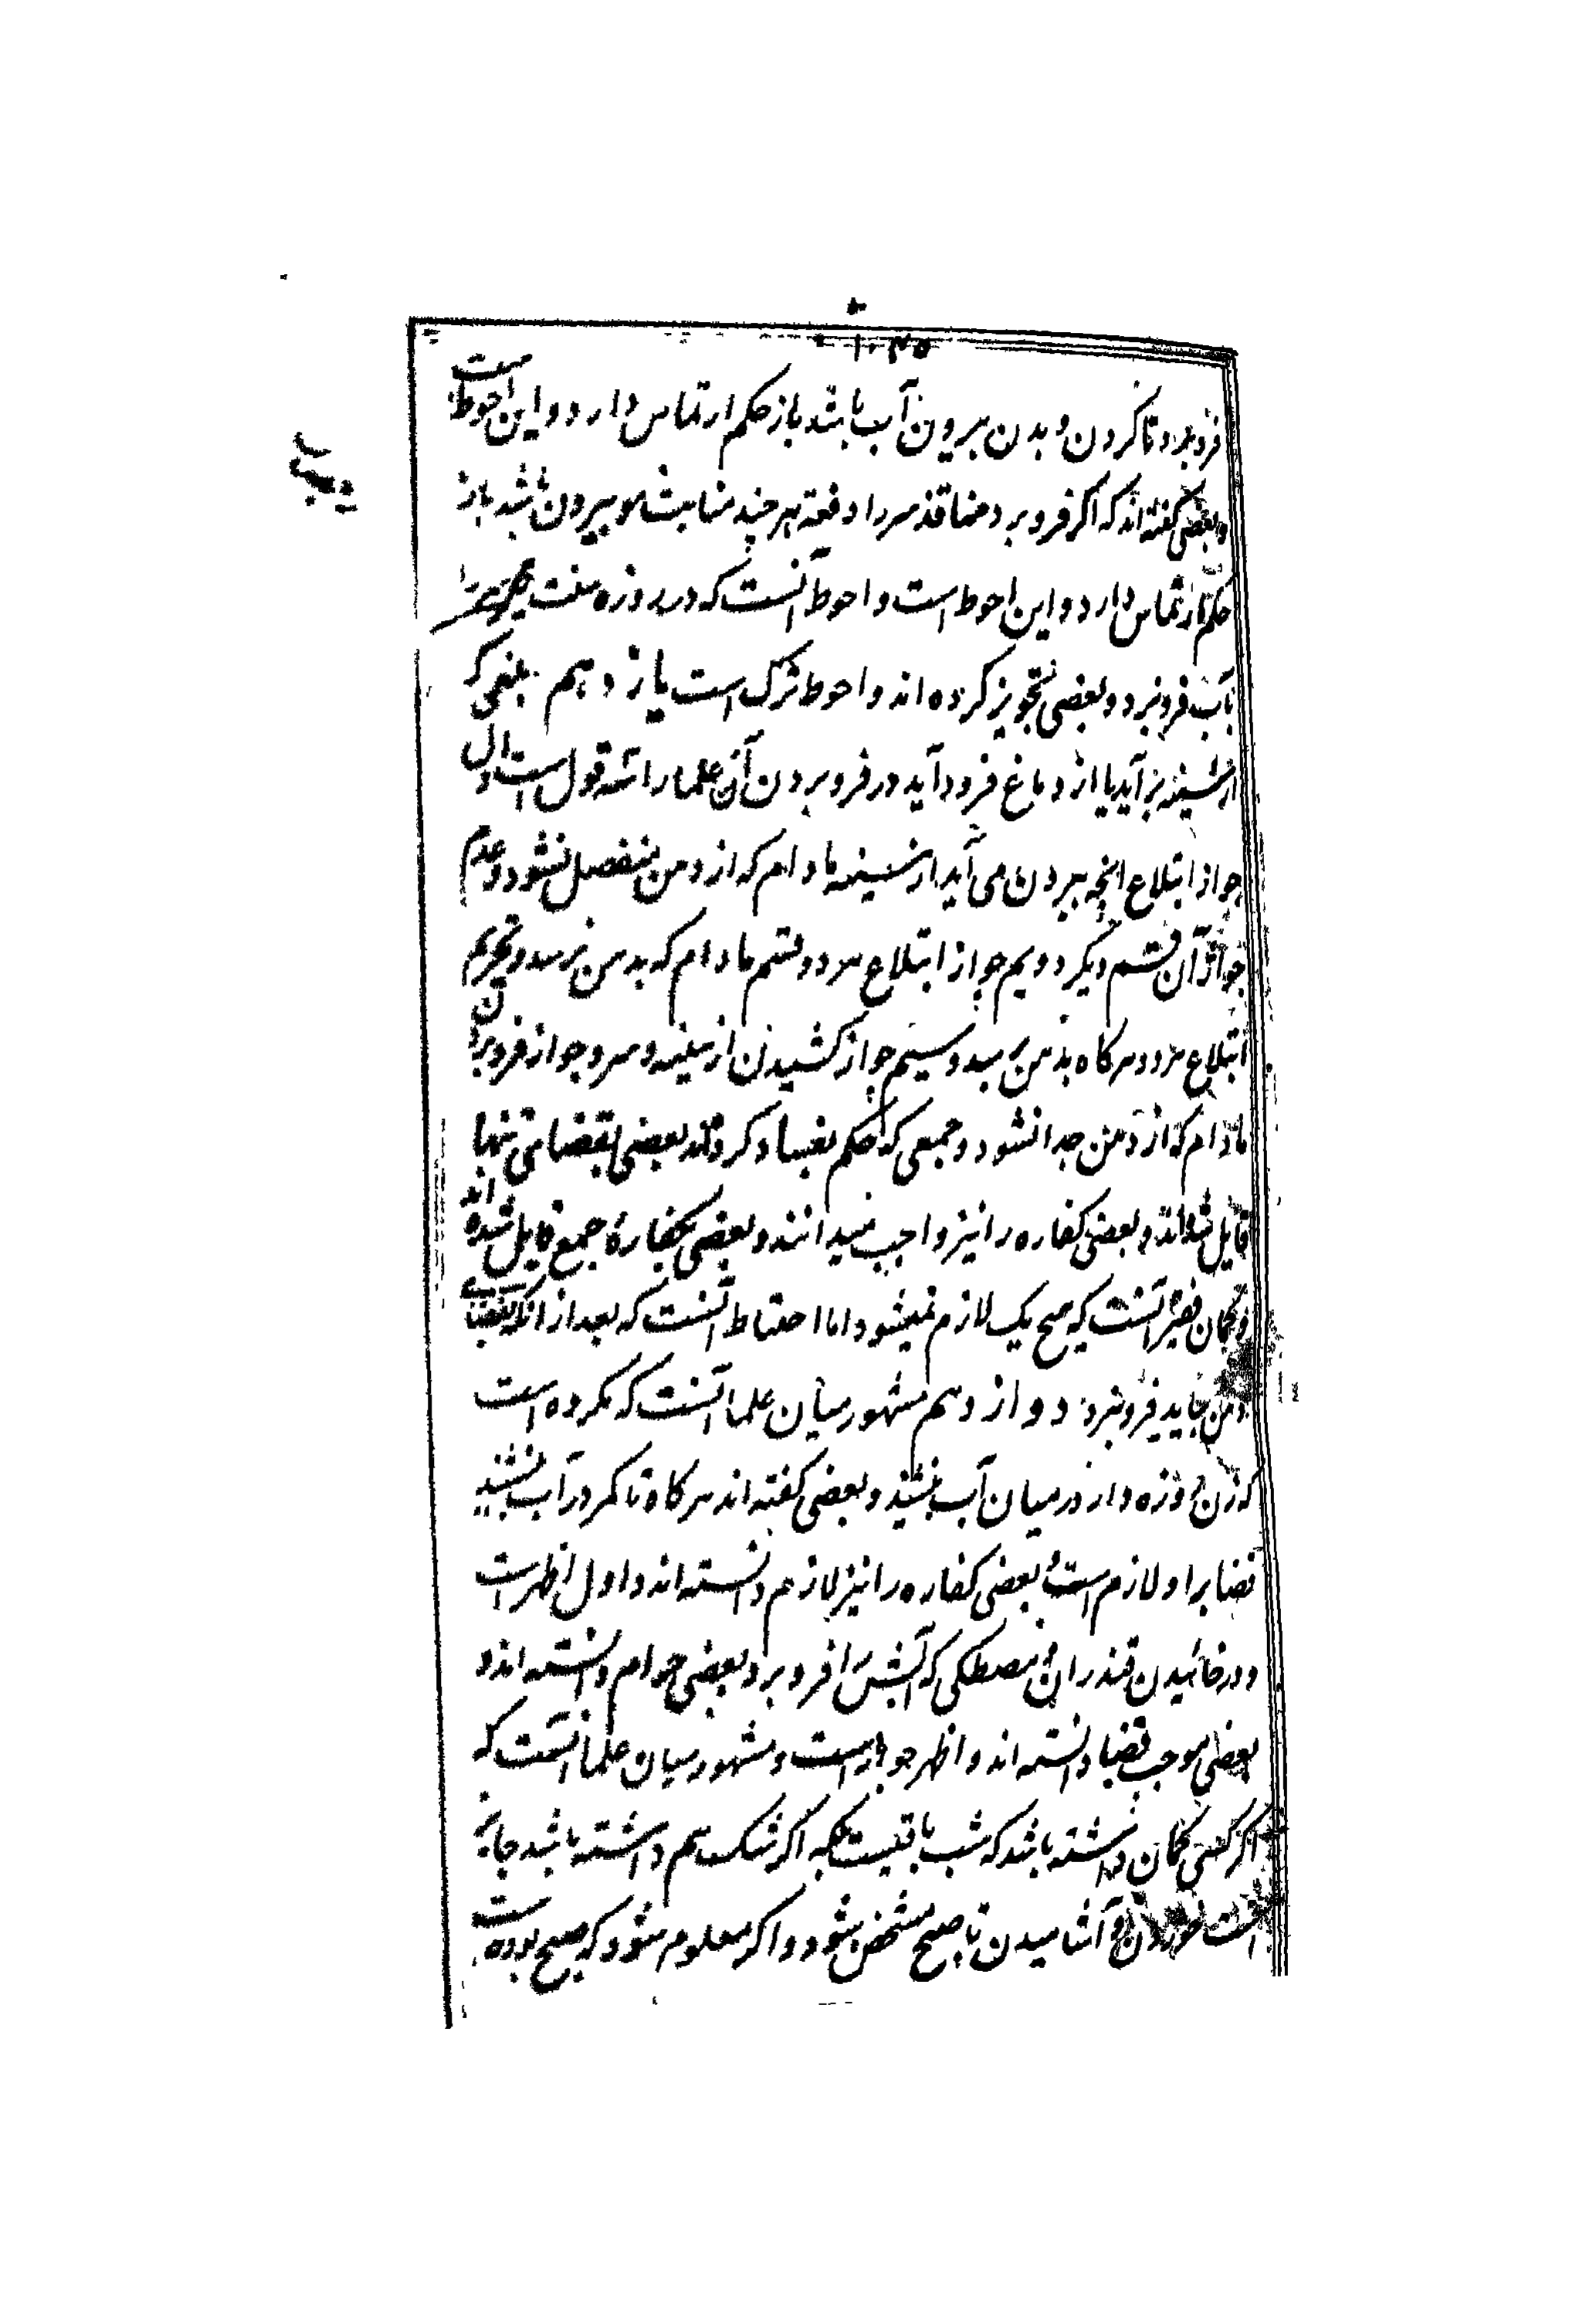 ۱۰۳۵
فرو برد تا کردن و بدن بیرون آب باشد باز حکم ارتماس دارد و این احوط است
و بعضی کفته اند که اکر فرو برد منافذ سر را دفعة هر چند منابت مو بیرون باشد باز
حکم ارتماس دارد و این احوط است و احوط آنست که در روزه سنت نیز سر را
بآب فرو نبرد و بعضی تجویز کرده اند و احوط ترک است یازدهم بلغمی که
از سینه برآید یا از دماغ فرود آید در فرو بردن آن علما را سه قول است اول
جواز ابتلاع انچه بیرون می آید از سینه مادام که از دهن منفصل نشود و عدم
جواز آن قسم دیکر دویم جواز ابتلاع هر دو قسم مادام که بدهن نرسد و تحریم
ابتلاع هر دو هرکاه بدهن برسد و سیم جواز کشیدن از سینه و سر و جواز فرو بردن
مادام که از دهن جدا نشود و جمعی که حکم بفساد کرده‌اند بعضی بقضای تنها
قایل شده‌اند و بعضی کفاره را نیز واجب میدانند و بعضی بکفارهٔ جمع قایل شده اند
و کمان فقیر آنست که هیچ یک لازم نمیشود اما احتیاط آنست که بعد از آنکه بفضای
دهن بیاید فرو نبرد دوازدهم مشهور میان علما آنست که مکروه است
که زن روزه دار در میان آب بنشیند و بعضی کفته اند هرکاه تا کمر در آب بنشیند
قضا بر او لازم است و بعضی کفاره را نیز لازم دانسته اند و اول اظهر است
و در خائیدن قندران و مصطکی که آبش را فرو برد بعضی حرام دانسته اند و
بعضی موجب قضا دانسته اند و اظهر جواز است و مشهور میان علما آنست که
اکر کسی کمان داشته باشد که شب باقیست بلکه اکر شک هم داشته باشد جایز
است خوردن و آشامیدن تا صبح مشخص شود و اکر معلوم شود که صبح بوده است